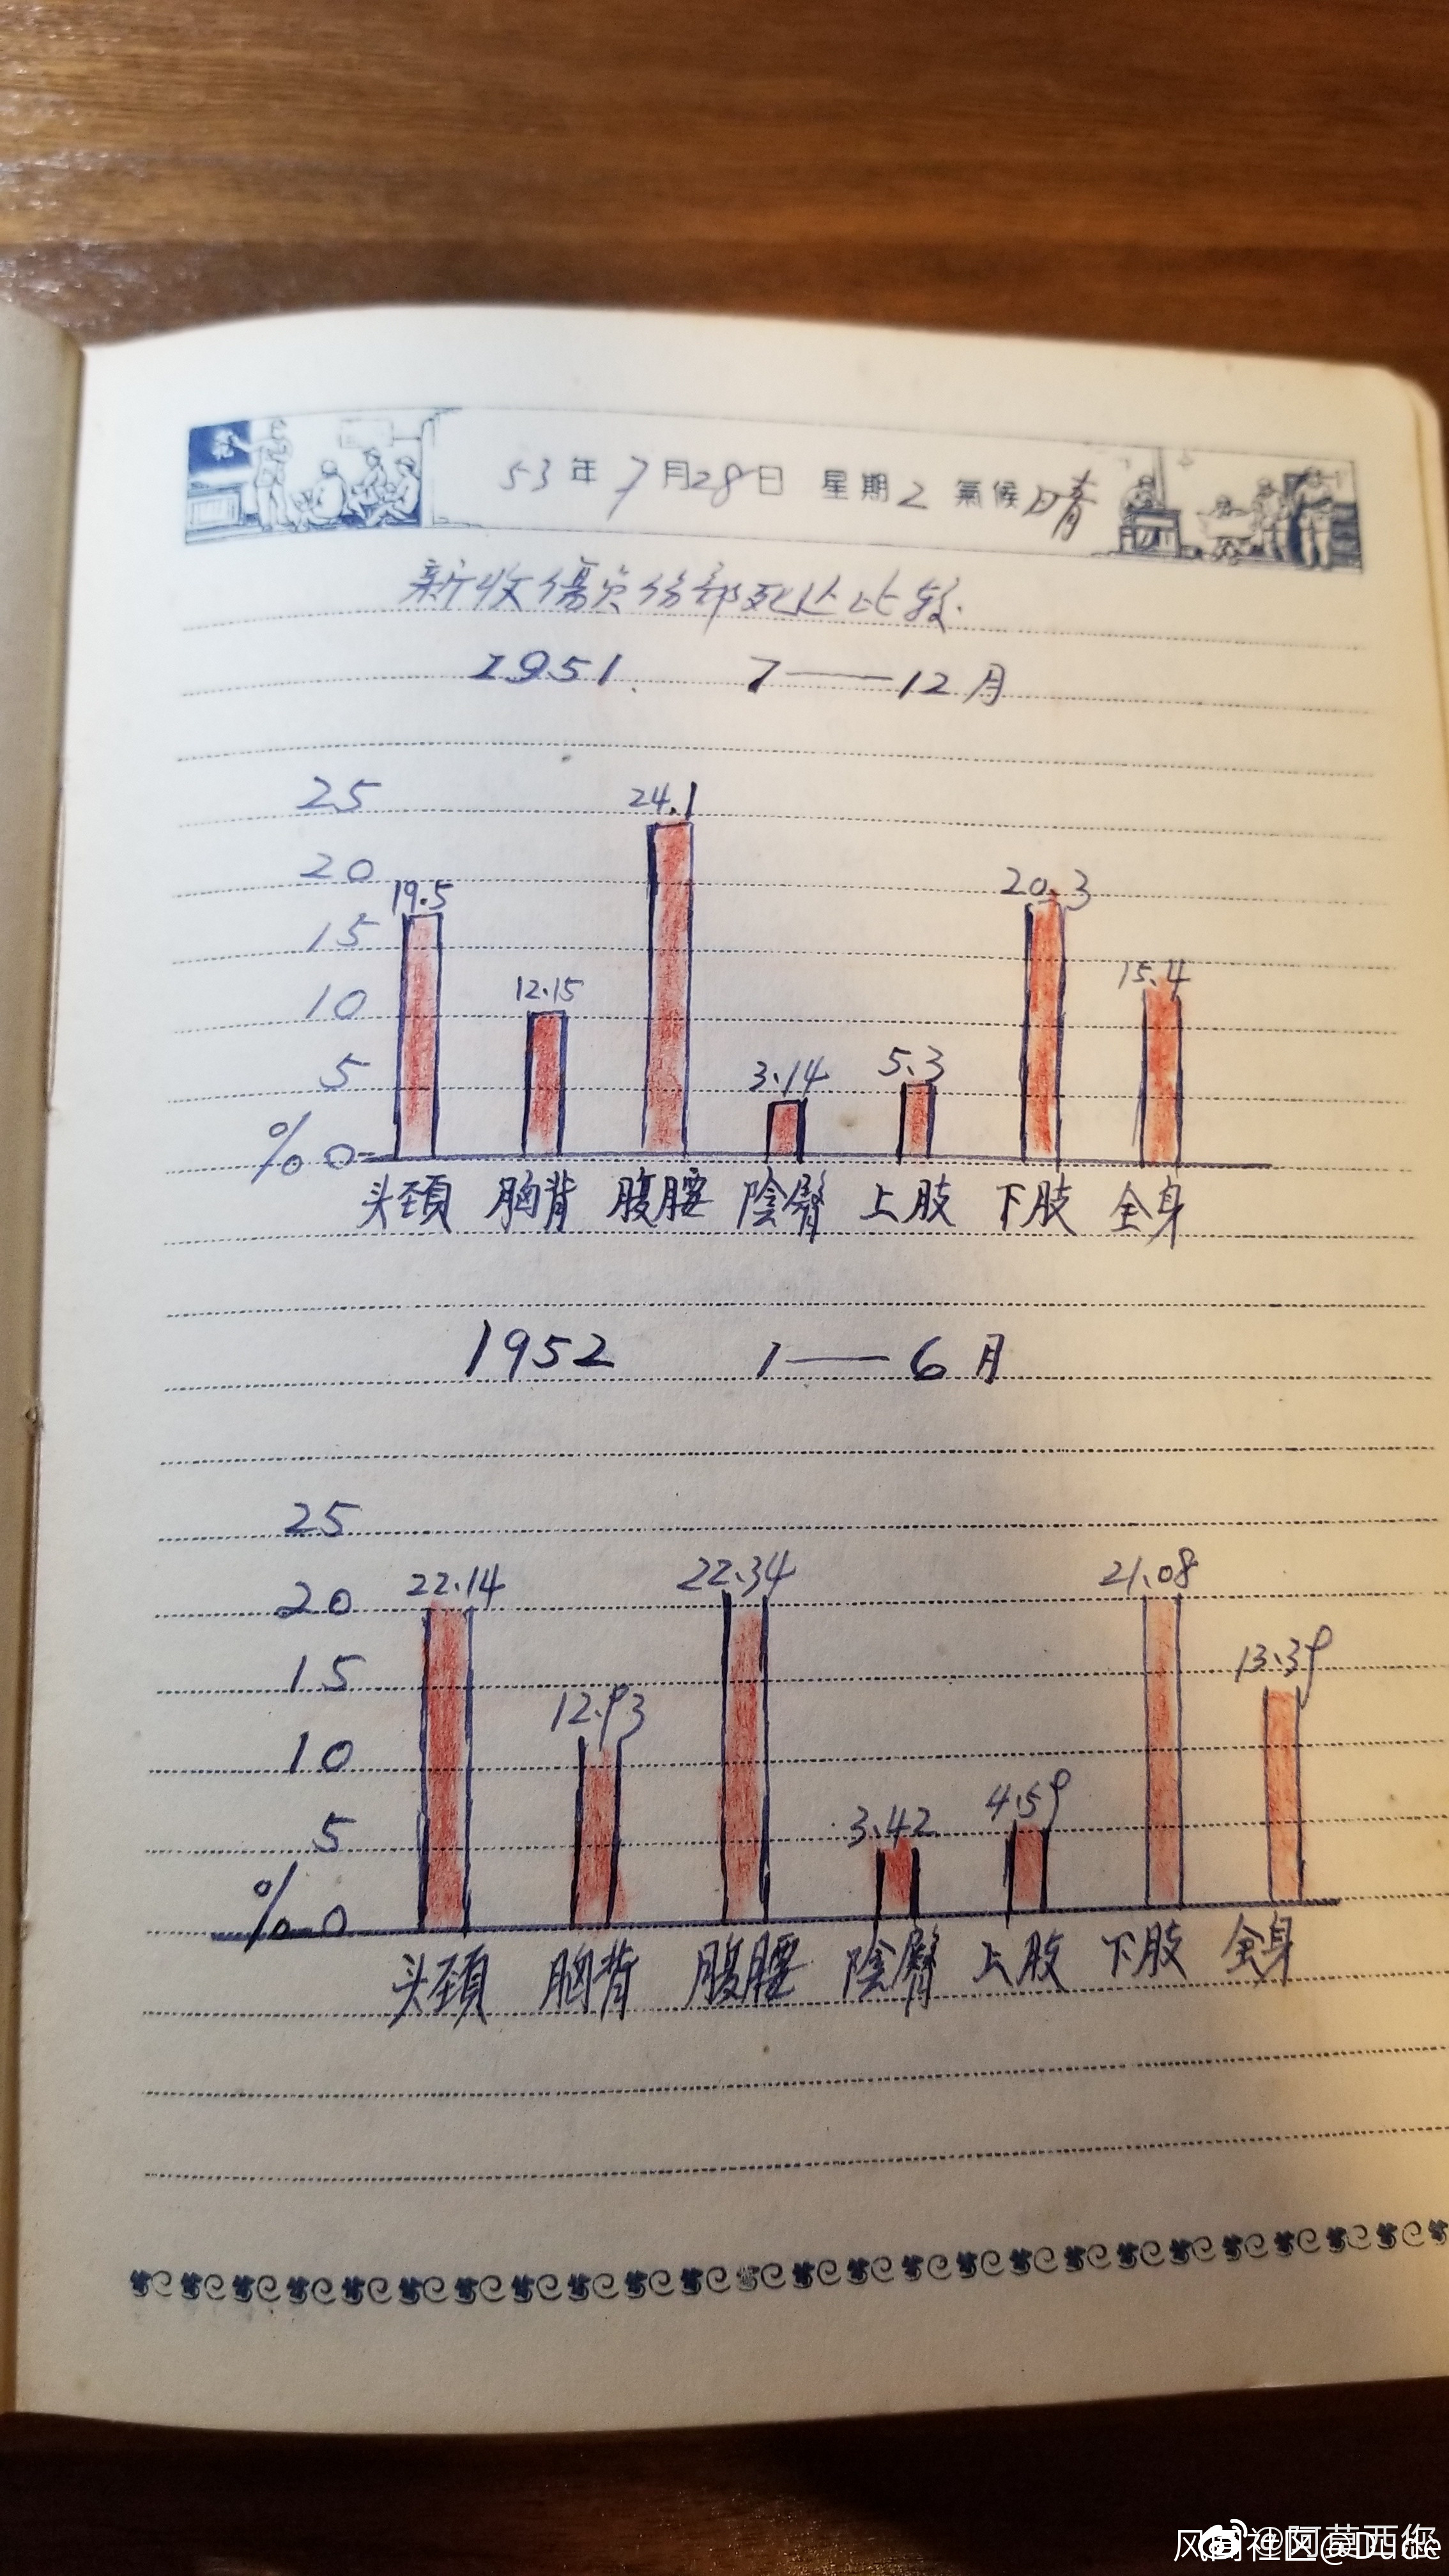 53年7月28日 星期2 氣候晴
新收傷员伤部死亡比较.
1951. 7——12月
25
20
15
10
5
% 0
19.5 12.15 24.1 3.14 5.3 20.3 15.4
头颈 胸背 腹腰 陰臀 上肢 下肢 全身
1952 1——6月
25
20
15
10
5
% 0
22.14 12.93 22.34 3.42 4.59 21.08 13.39
头颈 胸背 腹腰 陰臀 上肢 下肢 全身